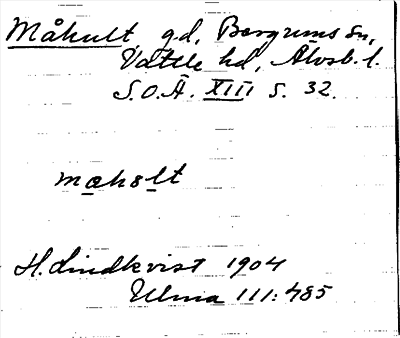 Måhult gd, Bergums sn,
Vättle hd, Älvsb. l.
S.O.Ä. XIII s. 32.
mahalt
H. Lindkvist 1904
Ulma 111:485